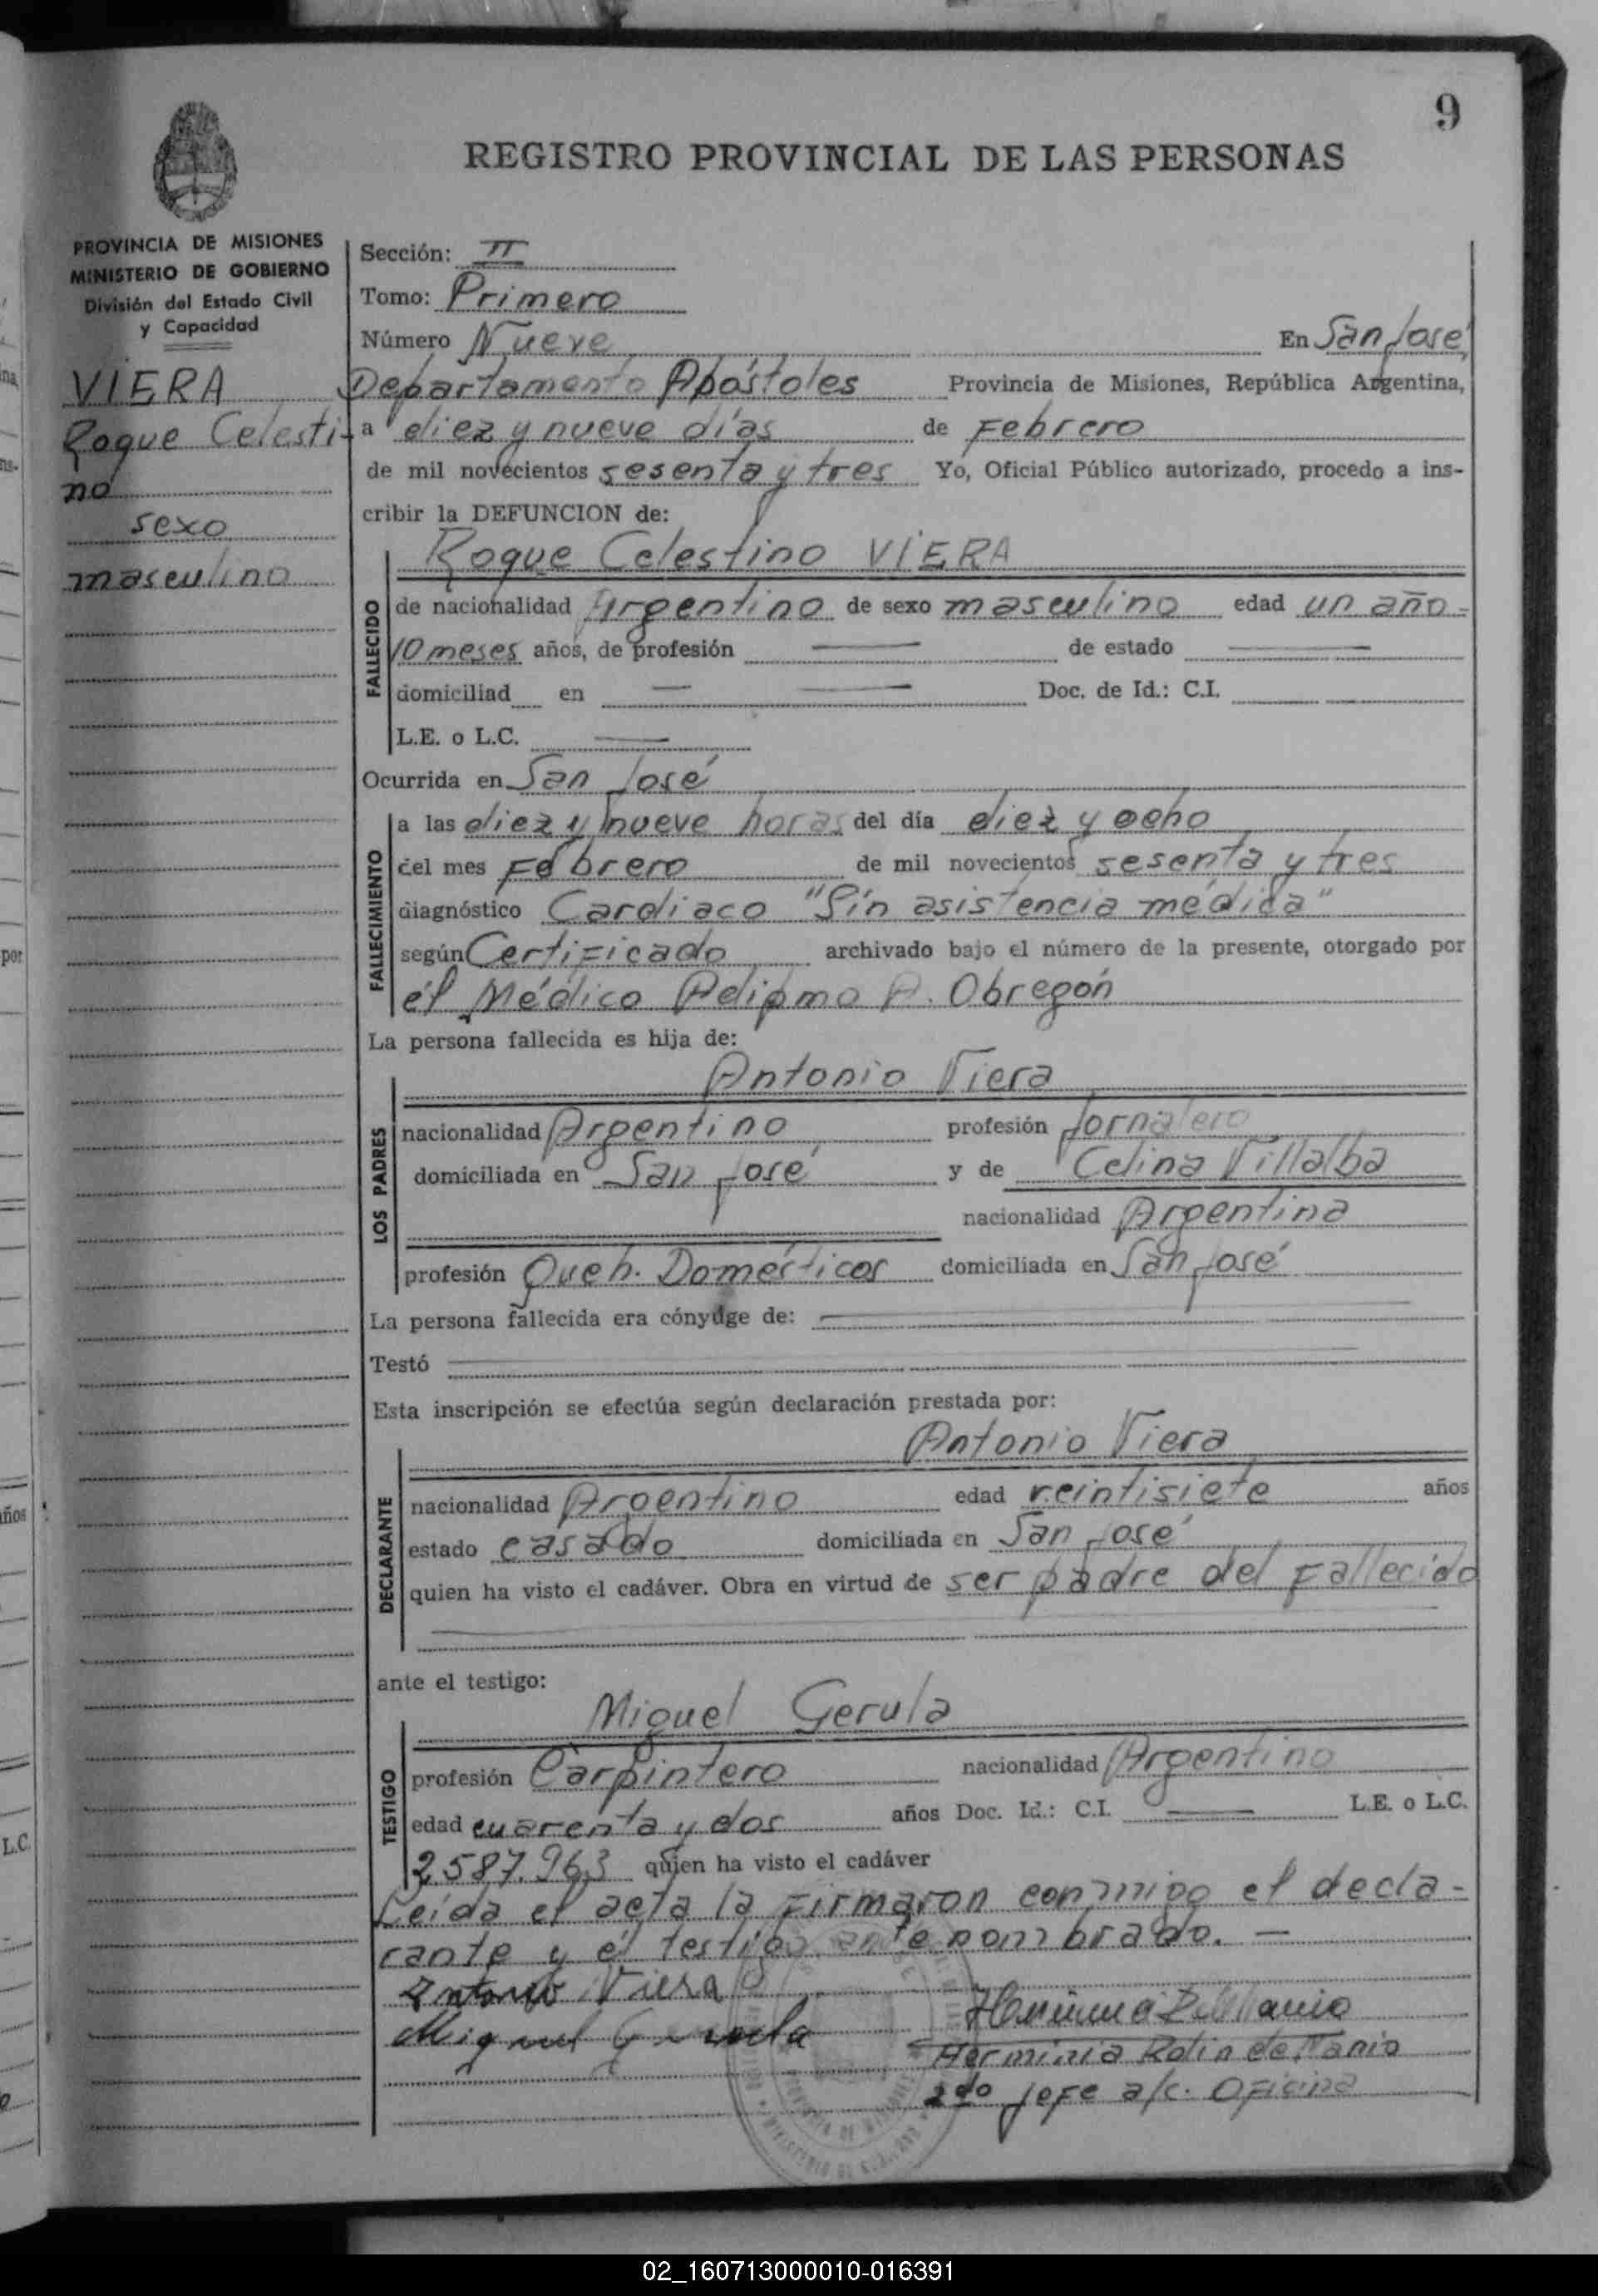 9
REGISTRO PROVINCIAL DE LAS PERSONAS
PROVINCIA DE MISIONES
MINISTERIO DE GOBIERNO
División del Estado Civil
y Capacidad
VIERA
Roque Celesti-
no
sexo
masculino
Sección: II
Tomo: Primero
Número Nueve En San José,
Departamento Apóstoles Provincia de Misiones, República Argentina,
a diez y nueve días de Febrero
de mil novecientos sesenta y tres Yo, Oficial Público autorizado, procedo a ins-
cribir la DEFUNCION de:
Roque Celestino VIERA
FALLECIDO
de nacionalidad Argentino de sexo masculino edad un año-
10 meses años, de profesión — de estado —
domiciliad en — — Doc. de Id.: C.I.
L.E. o L.C. —
Ocurrida en San José
FALLECIMIENTO
a las diez y nueve horas del día diez y ocho
del mes Febrero de mil novecientos sesenta y tres
diagnóstico Cardiaco "Sin asistencia médica"
según Certificado archivado bajo el número de la presente, otorgado por
él Médico A. Obregón
La persona fallecida es hija de:
Antonio Viera
LOS PADRES
nacionalidad Argentino profesión Jornalero
domiciliada en San José y de Celina Villalba
nacionalidad Argentina
profesión Queh. Domésticos domiciliada en San José
La persona fallecida era cónyuge de: —
Testó —
Esta inscripción se efectúa según declaración prestada por:
Antonio Viera
DECLARANTE
nacionalidad Argentino edad veintisiete años
estado casado domiciliada en San José
quien ha visto el cadáver. Obra en virtud de ser padre del Fallecido
ante el testigo:
Miguel Gerula
TESTIGO
profesión Carpintero nacionalidad Argentino
edad cuarenta y dos años Doc. Id.: C.I. — L.E. o L.C.
2.587.963 quien ha visto el cadáver
Leída el acta la firmaron conmigo el decla-
rante y él testigo ante nombrado. —
Antonio Viera
Miguel Gerula
Herminia
Herminia Rolin de Mania
2do jefe a/c. Oficina
02_160713000010-016391